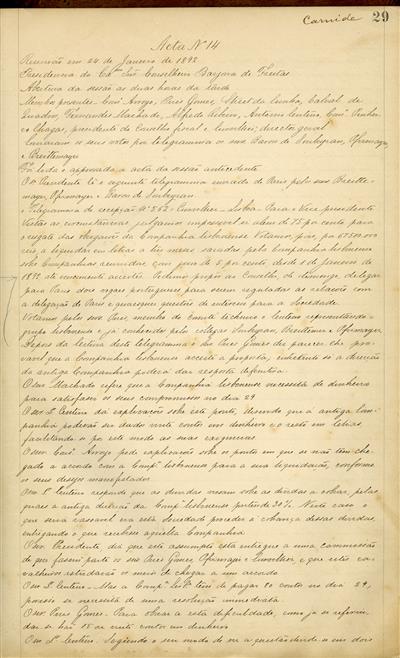 Carnide 29
Acta Nº 14
Reunião em 24 de Janeiro de 1892
Presidencia do Exmo Snr Conselheiro Bayona de Freitas
Abertura da sessão ás duas horas da tarde
Membros presentes: Consº Arroyo, Pires Gomes, Abreu da Cunha, Cabral de
Quadros, Fernandes Machado, Alfredo Ribeiro, Antonio Centeno, Consº
e Chagas, presidente do Conselho fiscal e director geral
Enviaram os seus votos por telegramma os snrs Baron de
e
Foi lida e approvada a acta da sessão antecedente
O Snr Presidente lê o seguinte telegramma enviado de Paris pelos snrs
e Baron de
Telegramma de recepção Nº 262 - Lisboa. Para o Vice presidente
Vistas as circumstancias julgamos não ir alem de 75 por cento para
o resgate das obrigações da Companhia lisbonense. Votamos, pois, por
reis, a liquidar em letras a tres mezes sacadas pela Companhia lisbonense
sobre Companhias reunidas com juro de 5 por cento desde 1 de Janeiro de
1892 até vencimento acceites. Pedimos propôr ao Conselho, de domingo, delegar
para Paris dois vogaes portuguezes para serem reguladas as relações com
a delegação de Paris e quaesquer questões de interesse para a Sociedade.
Votamos pelo snr Pires, membro do Comité technico e Centeno representando o
grupo lisbonense e já conhecido pelos collegas
Depois da leitura deste telegramma o snr Pires Gomes diz parecer-lhe pro-
vavel que a Companhia lisbonense acceite a proposta, entretanto só a direcção
da antiga Companhia poderá dar resposta definitiva.
O snr Machado refere que a Companhia lisbonense necessita de dinheiro
para satisfazer os seus compromissos no dia 29
O snr A. Centeno dá explicações sobre este ponto, dizendo que á antiga Com-
panhia poderão ser dados vinte contos em dinheiro e o resto em letras,
facilitando-se por este modo as suas exigencias
O snr Consº Arroyo pede explicações sobre os pontos em que se não tem che-
gado a accordo com a Compª lisbonense para a sua liquidação, conforme
os seus desejos manifestados
O snr A. Centeno responde que as duvidas versam sobre as dividas a cobrar, pelas
quaes a antiga direcção da Compª lisbonense pretende 30%. N'este caso o
que seria rasoavel era esta Sociedade proceder á cobrança dessas dividas,
entregando o que recebesse áquella Companhia
O snr Presidente diz que este assumpto está entregue a uma commissão
de que fazem parte os snrs Pires Gomes, e que estes ca-
valheiros estudarão o meio de chegar a um accordo
O snr A. Centeno - Mas a Compª lisbª tem de pagar 20 contos no dia 29,
por isso se necessita de uma resolução immediata
O snr Pires Gomes - Para obviar a esta difficuldade, como já se referiu,
dar-se-hão 15 ou vinte contos em dinheiro
O snr A. Centeno. Segundo o seu modo de ver a questão divide-se em dois